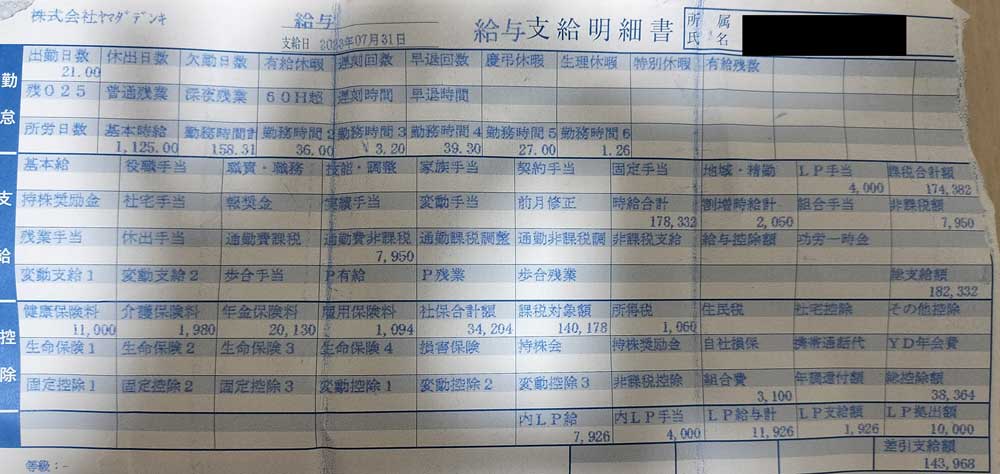 株式会社ヤマダデンキ
給与
給与支給明細書
所属
氏名
支給日 2023年07月31日
勤怠
出勤日数 休出日数 欠勤日数 有給休暇 遅刻回数 早退回数 慶弔休暇 生理休暇 特別休暇 有給残数
21.00
残025 普通残業 深夜残業 60H超 遅刻時間 早退時間
所労日数 基本時給 勤務時間計 勤務時間2 勤務時間3 勤務時間4 勤務時間5 勤務時間6
1,125.00 158.31 36.00 3.20 39.30 27.00 1.26
支給
基本給 役職手当 職責・職務 技能・調整 家族手当 契約手当 固定手当 地域・精勤 LP手当 課税合計額
4,000 174,382
持株奨励金 社宅手当 報奨金 実績手当 変動手当 前月修正 時給合計 割増時給計 組合手当 非課税額
178,332 2,050 7,950
残業手当 休出手当 通勤費課税 通勤費非課税 通勤課税調整 通勤非課税調 非課税支給 給与控除額 功労一時金
7,950
変動支給1 変動支給2 歩合手当 P有給 P残業 歩合残業 総支給額
182,332
控除
健康保険料 介護保険料 年金保険料 雇用保険料 社保合計額 課税対象額 所得税 住民税 社宅控除 その他控除
11,000 1,980 20,130 1,094 34,204 140,178 1,060
生命保険1 生命保険2 生命保険3 生命保険4 損害保険 持株会 持株奨励金 自社損保 携帯通話代 YD年会費
固定控除1 固定控除2 固定控除3 変動控除1 変動控除2 変動控除3 非課税控除 組合費 年調還付額 総控除額
3,100 38,364
内LP給 内LP手当 LP給与計 LP支給額 LP拠出額
7,926 4,000 11,926 1,926 10,000
差引支給額
143,968
等級:-